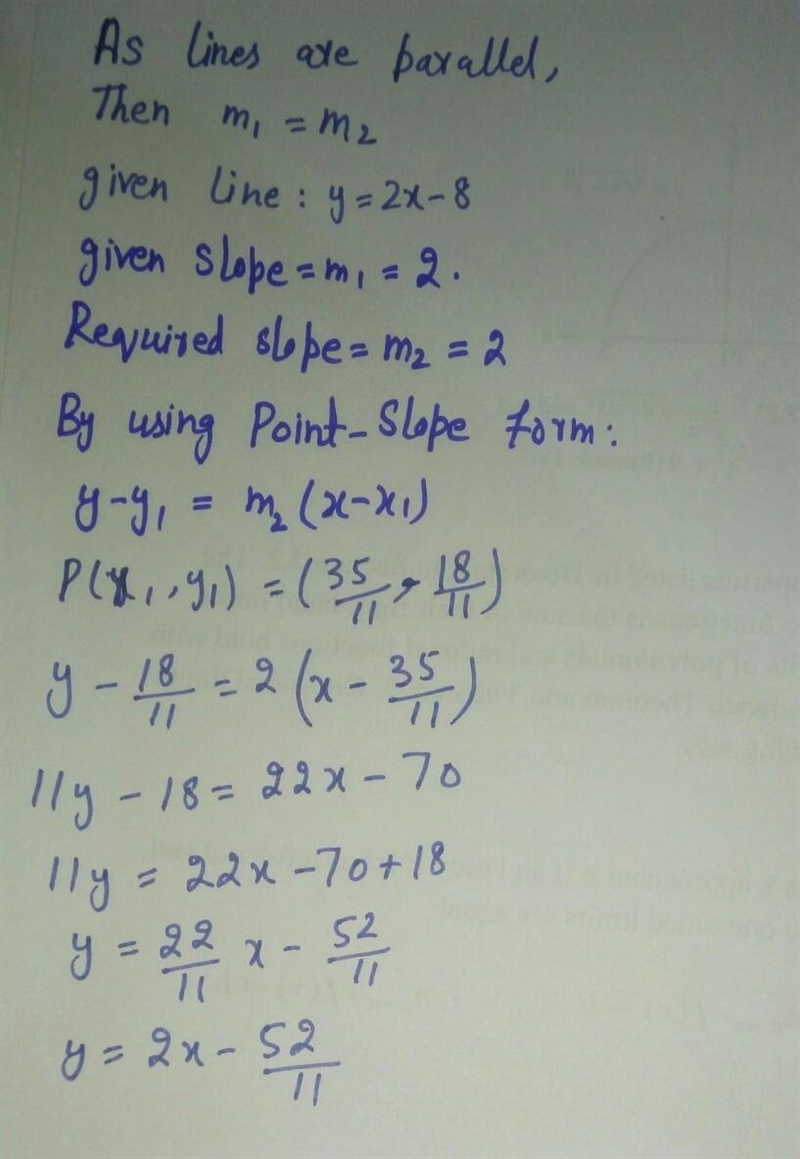 As lines are parallel,
Then m₁ = m₂
given line: y = 2x - 8
given slope = m₁ = 2.
Required slope = m₂ = 2
By using Point-Slope form:
y - y₁ = m₂ (x - x₁)
P(x₁, y₁) = (35/11, 18/11)
y - 18/11 = 2 (x - 35/11)
11y - 18 = 22x - 70
11y = 22x - 70 + 18
y = 22/11 x - 52/11
y = 2x - 52/11